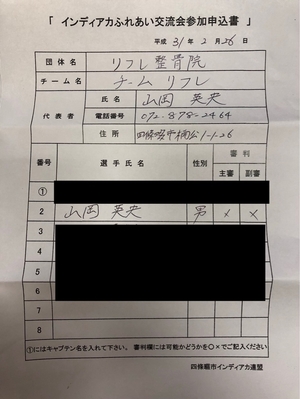 「 インディアカふれあい交流会参加申込書 」
平成 31 年 2 月 26 日
団体名 リフレ整骨院
チーム名 チームリフレ
代表者 氏名 山岡 英央
電話番号 072-878-2464
住所 四條畷市楠公1-1-26
番号 選手氏名 性別 審判
主審 副審
①
2 山岡 英央 男 × ×
3
4
5
6
7
8
①にはキャプテン名を入れて下さい。 審判欄には可能かどうかを○×でご記入ください
四條畷市インディアカ連盟